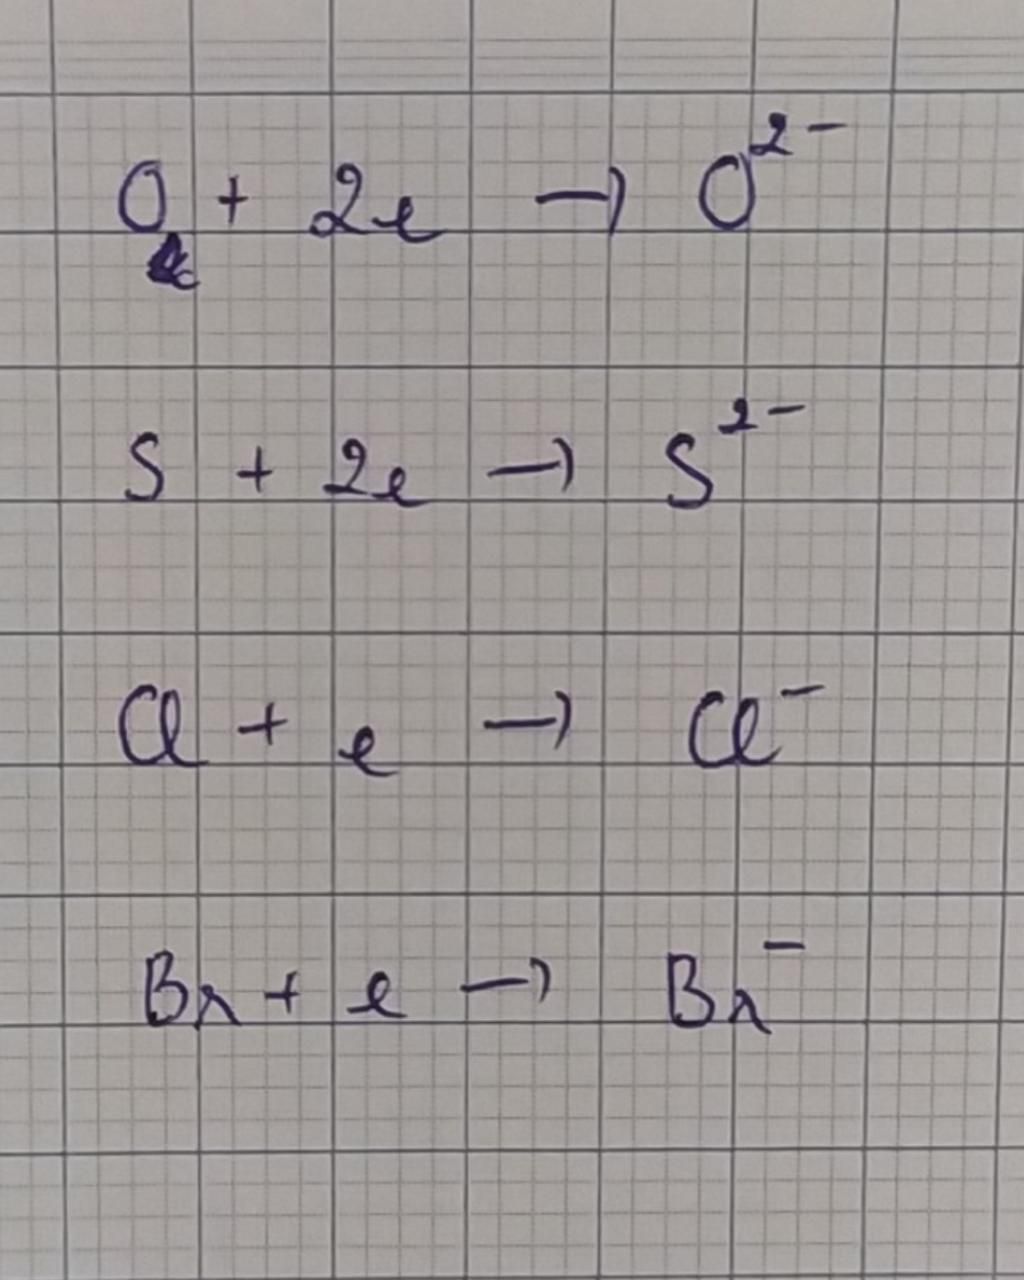 O + 2e → O²⁻
S + 2e → S²⁻
Cl + e → Cl⁻
Br + e → Br⁻